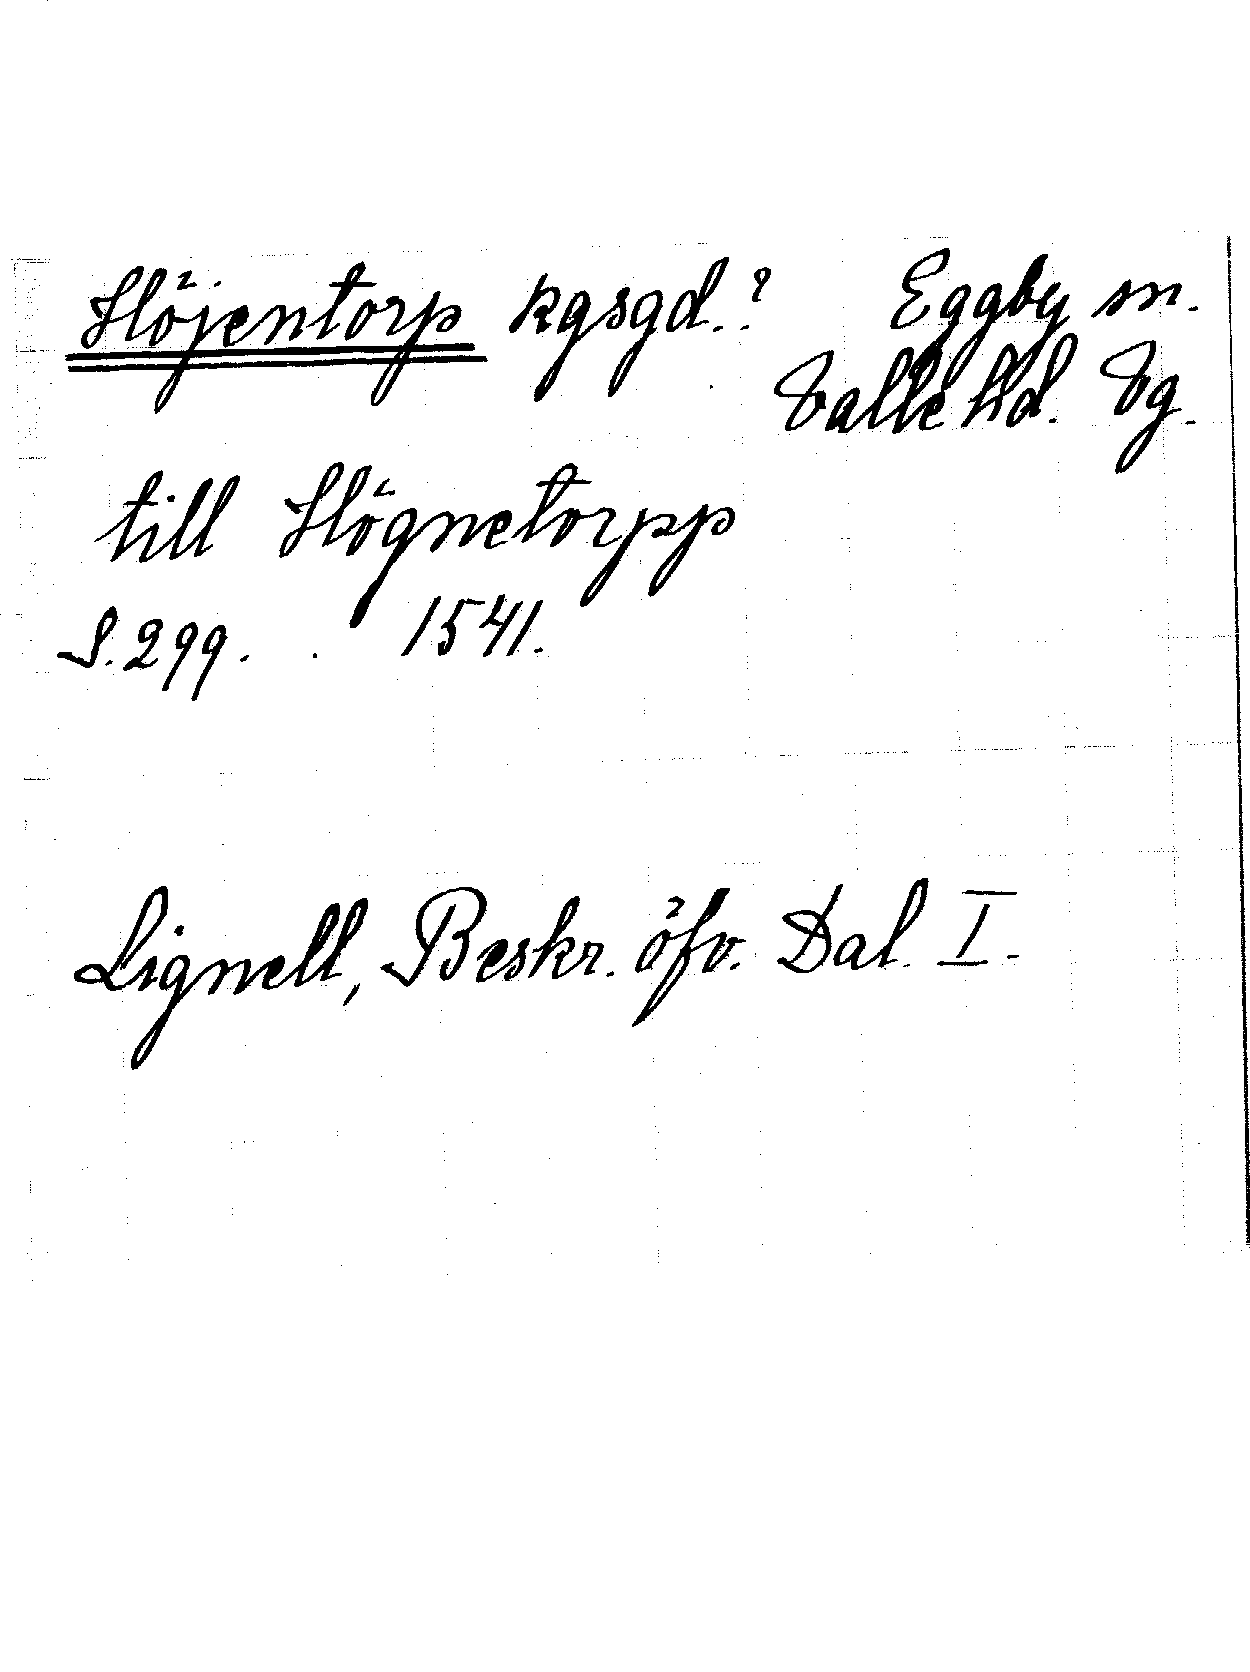 Höjentorp kgsgd.? Eggby sn.
Valle hd. Vg.
till Högnetorpp
S. 299. 1541.
Lignell, Beskr. öfv. Dal. I.